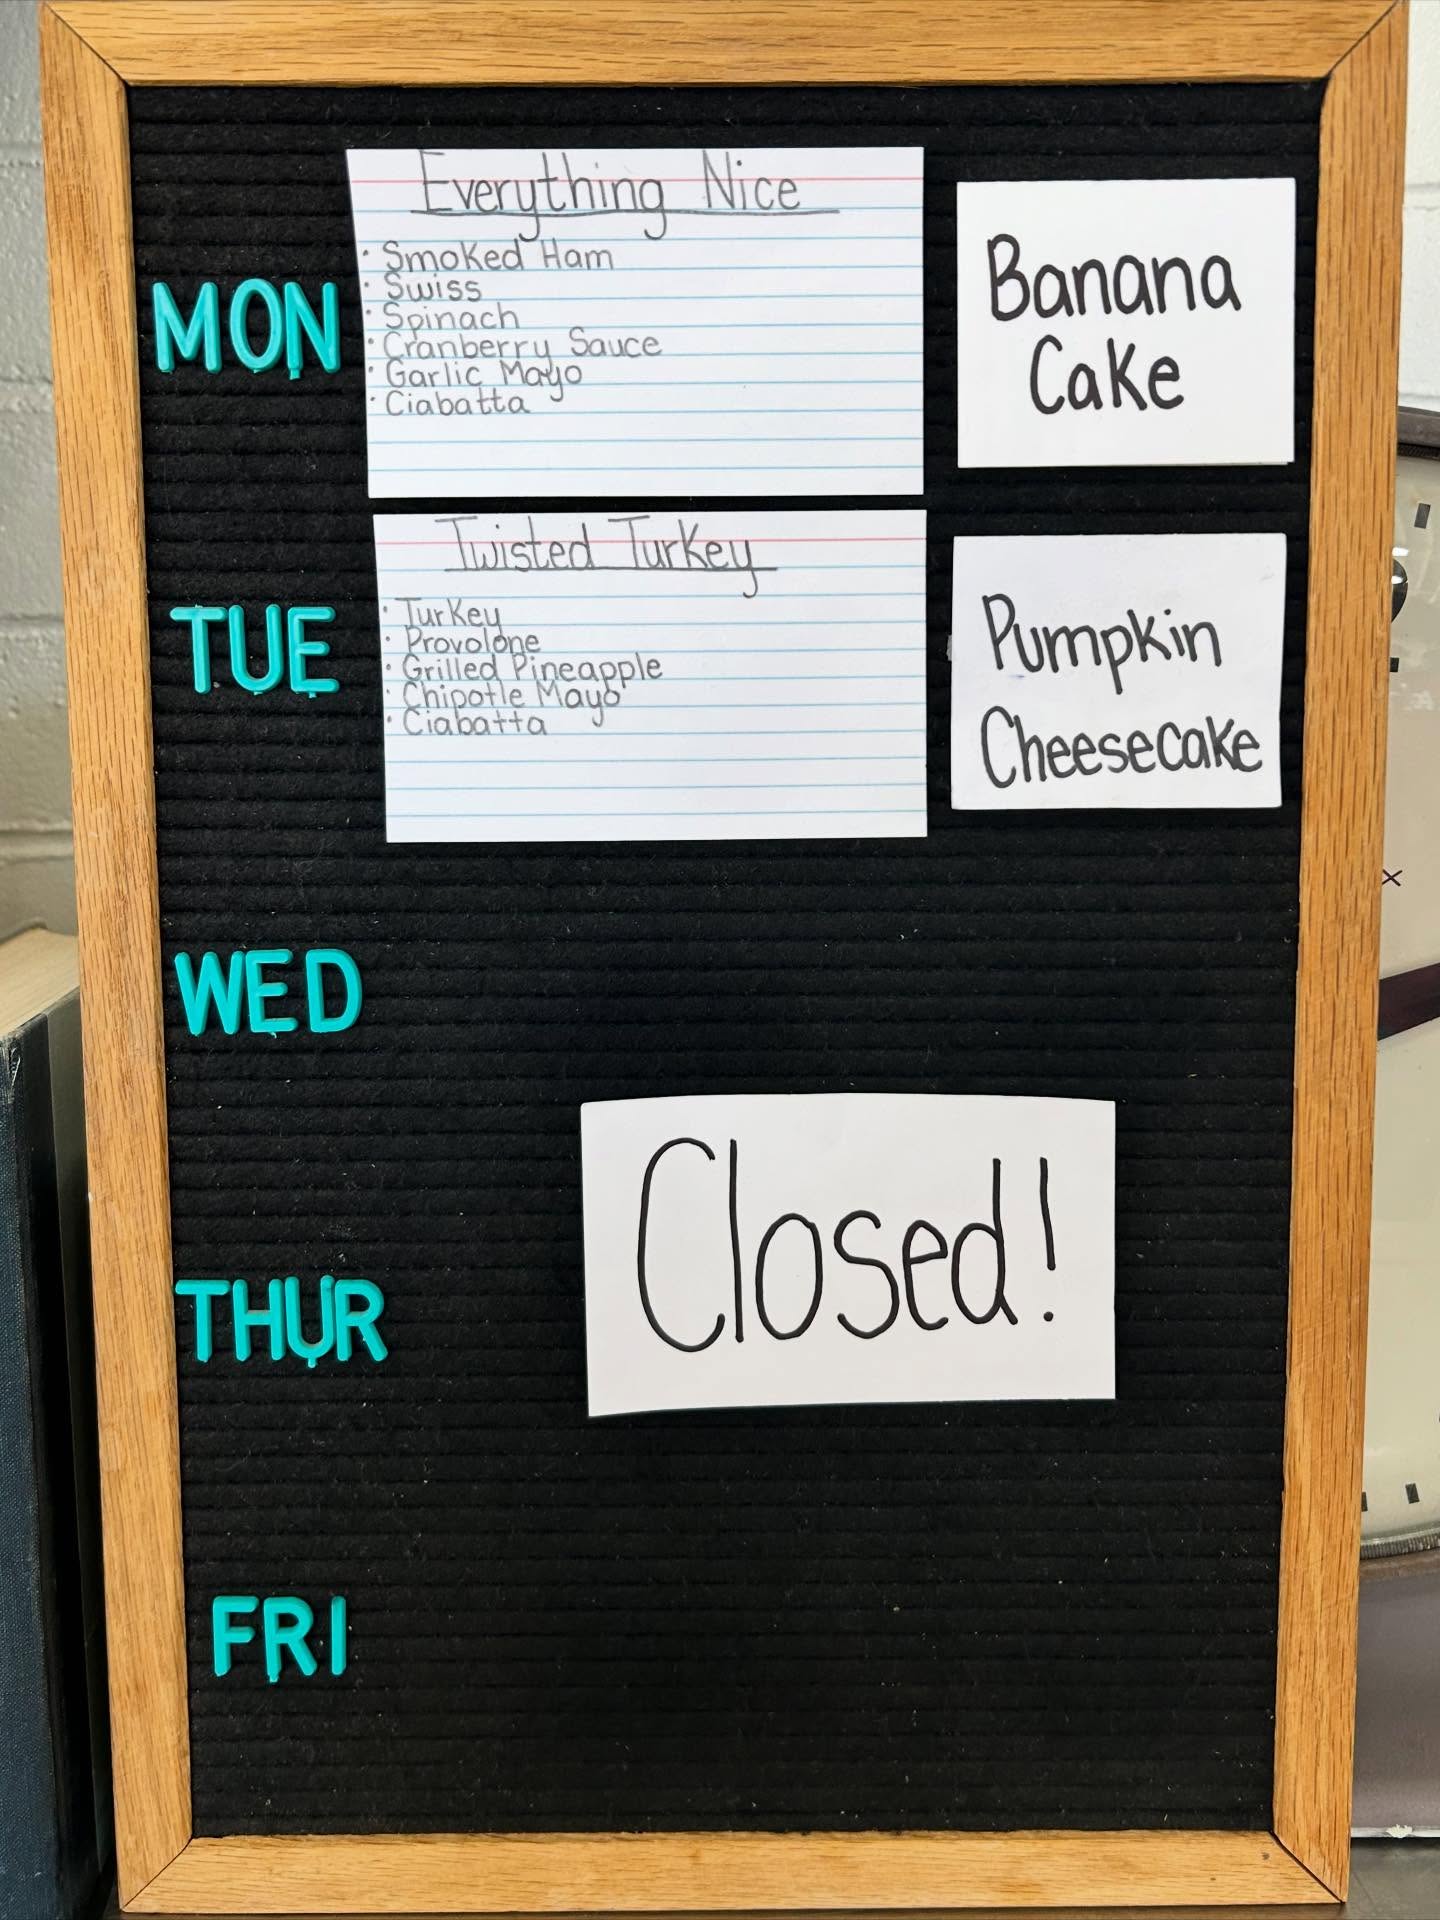 MON
Everything Nice
· Smoked Ham
· Swiss
· Spinach
· Cranberry Sauce
· Garlic Mayo
· Ciabatta
Banana
Cake
TUE
Twisted Turkey
· Turkey
· Provolone
· Grilled Pineapple
· Chipotle Mayo
· Ciabatta
Pumpkin
Cheesecake
WED
THUR
Closed!
FRI